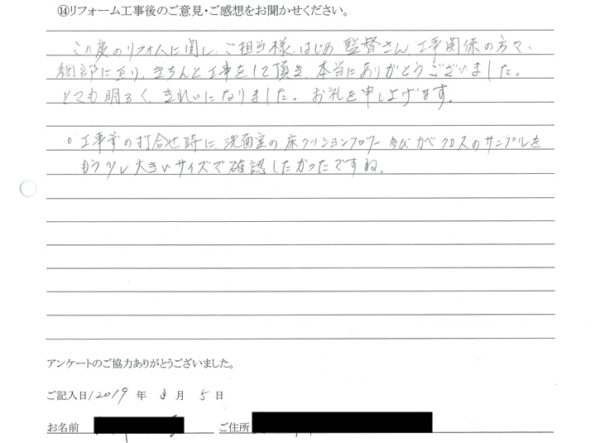 ⑭リフォーム工事後のご意見・ご感想をお聞かせください。
この度のリフォームに関し、ご担当様、はじめ 監督さん、工事関係の方々、
細部に亘り、きちんと工事をして頂き、本当にありがとうございました。
とても明るく、きれいになりました。お礼を申し上げます。
○工事前の打合せ時に、洗面室の床クッションフロアー及びカベクロスのサンプルを
もう少し大きいサイズで確認したかったですね。
アンケートのご協力ありがとうございました。
ご記入日/2019 年 月 5 日
お名前 ご住所